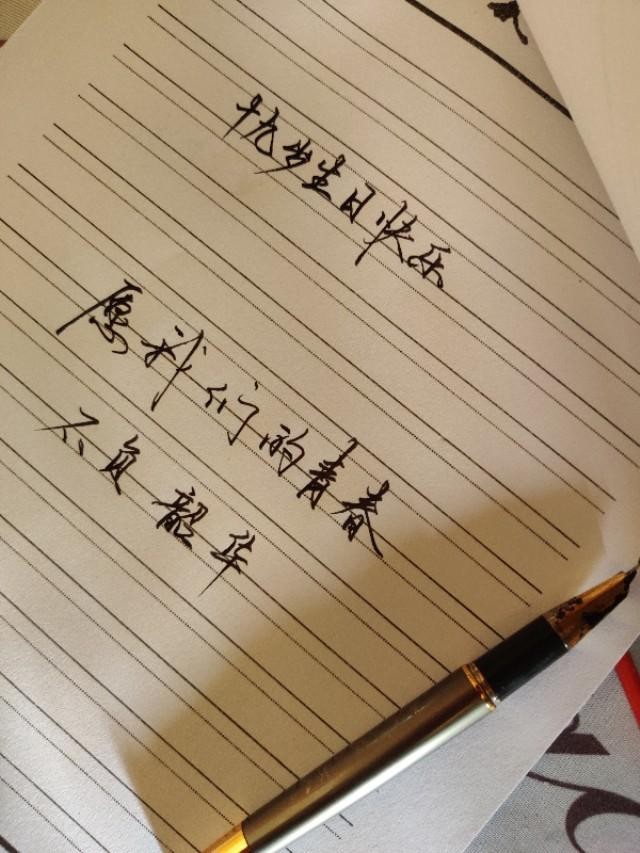 十九岁生日快乐
愿我们的青春
不负韶华